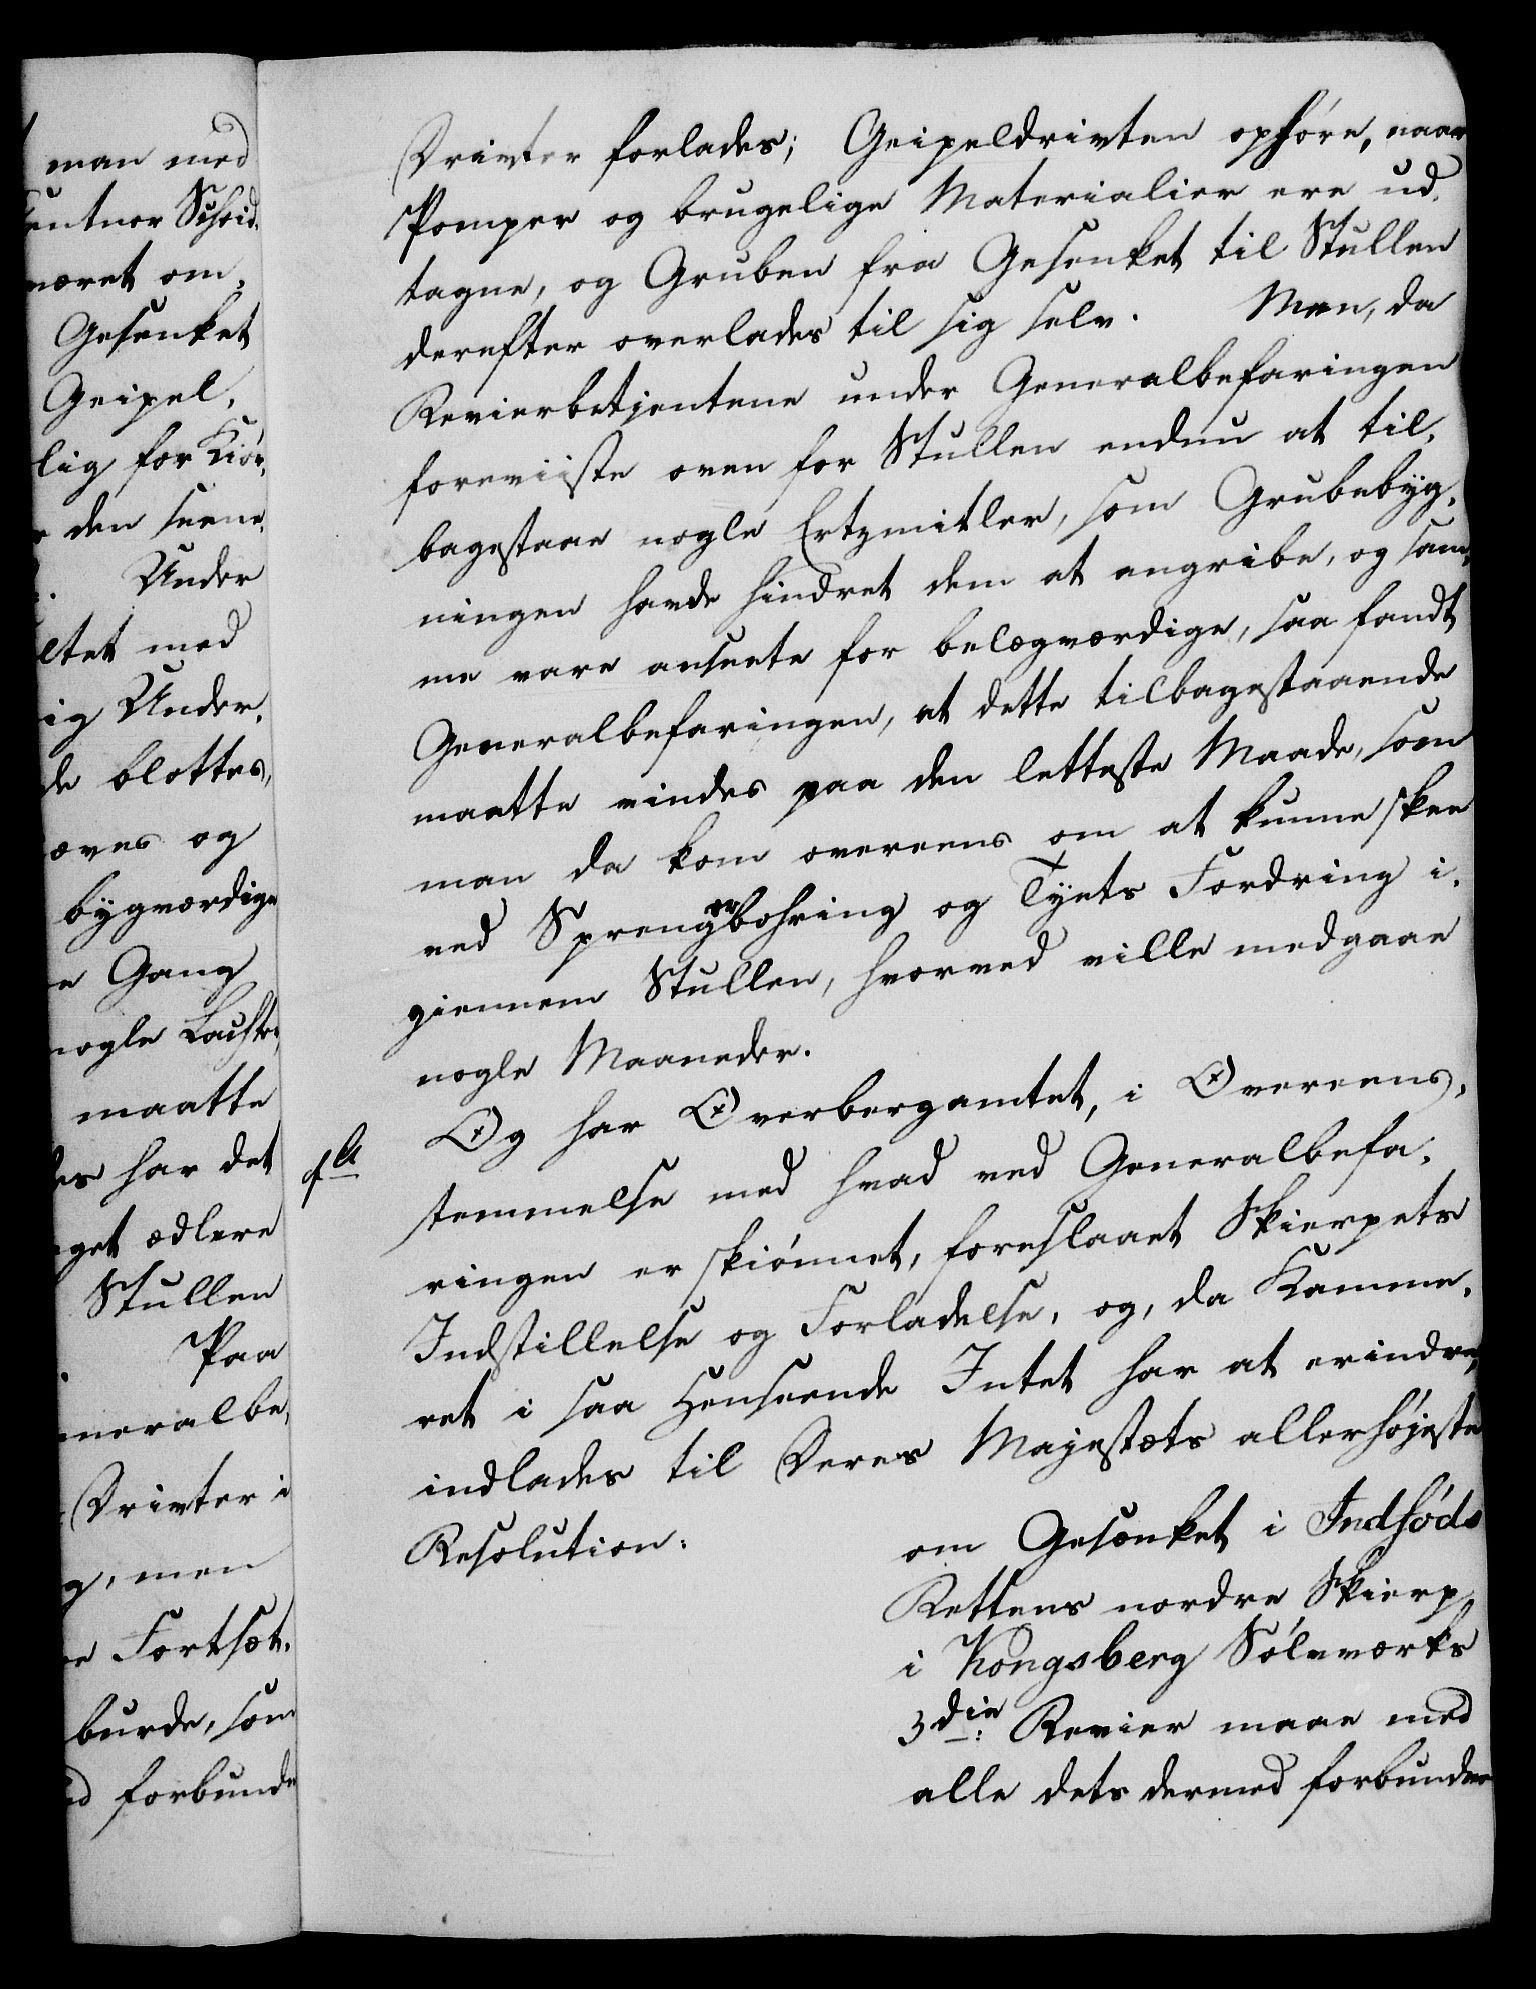 man med
entner Scheid,
været om,
Gesenket
Geipel,
lig for Kiör,
den seene,
Under
ltet med
ig Under,
de blottes,
æves og
bygværdige
e Gang
nogle Lachter,
maatte
es har det
get ædlere
Stullen
Paa
neralbe,
Drivter i
g, men
e Fortsæt,
burde, som
d forbunde
Drivter forlades; Geipeldrivten ophöre, naar
Pomper og brugelige Materialier ere ud,
tagne, og Gruben fra Gesenket til Stullen
derefter overlades til sig selv. Men, da
Revierbetjentene under Generalbefaringen
foreviiste oven for Stullen endnu at til,
bagestaae nogle Ertzmitler, som Grubebyg,
ningen havde hindret dem at angribe, og sam,
me vare anseete for belægværdige, saa fandt
Generalbefaringen, at dette tilbagestaaende
maatte vindes paa den letteste Maade, som
man da kom overeens om at kunne skee
ved Sprengerbohring og Tÿets Fordring i,
giennem Stullen, hvorved ville medgaae
nogle Maaneder.
Og har Overbergamtet, i Overeens,
stemmelse med hvad ved Generalbefa,
ringen er skiönnet, foreslaaet Skierpets
Indstillelse og Forladelse, og, da Kamme,
ret i saa Henseende Intet har at erindre,
indlades til Deres Majestæts allerhöjeste
Resolution:
om Gesenket i Indföds
Rettens nordre Skierp
i Kongsberg Sölvværks
3die: Revier maae med
alle dets dermed forbundne